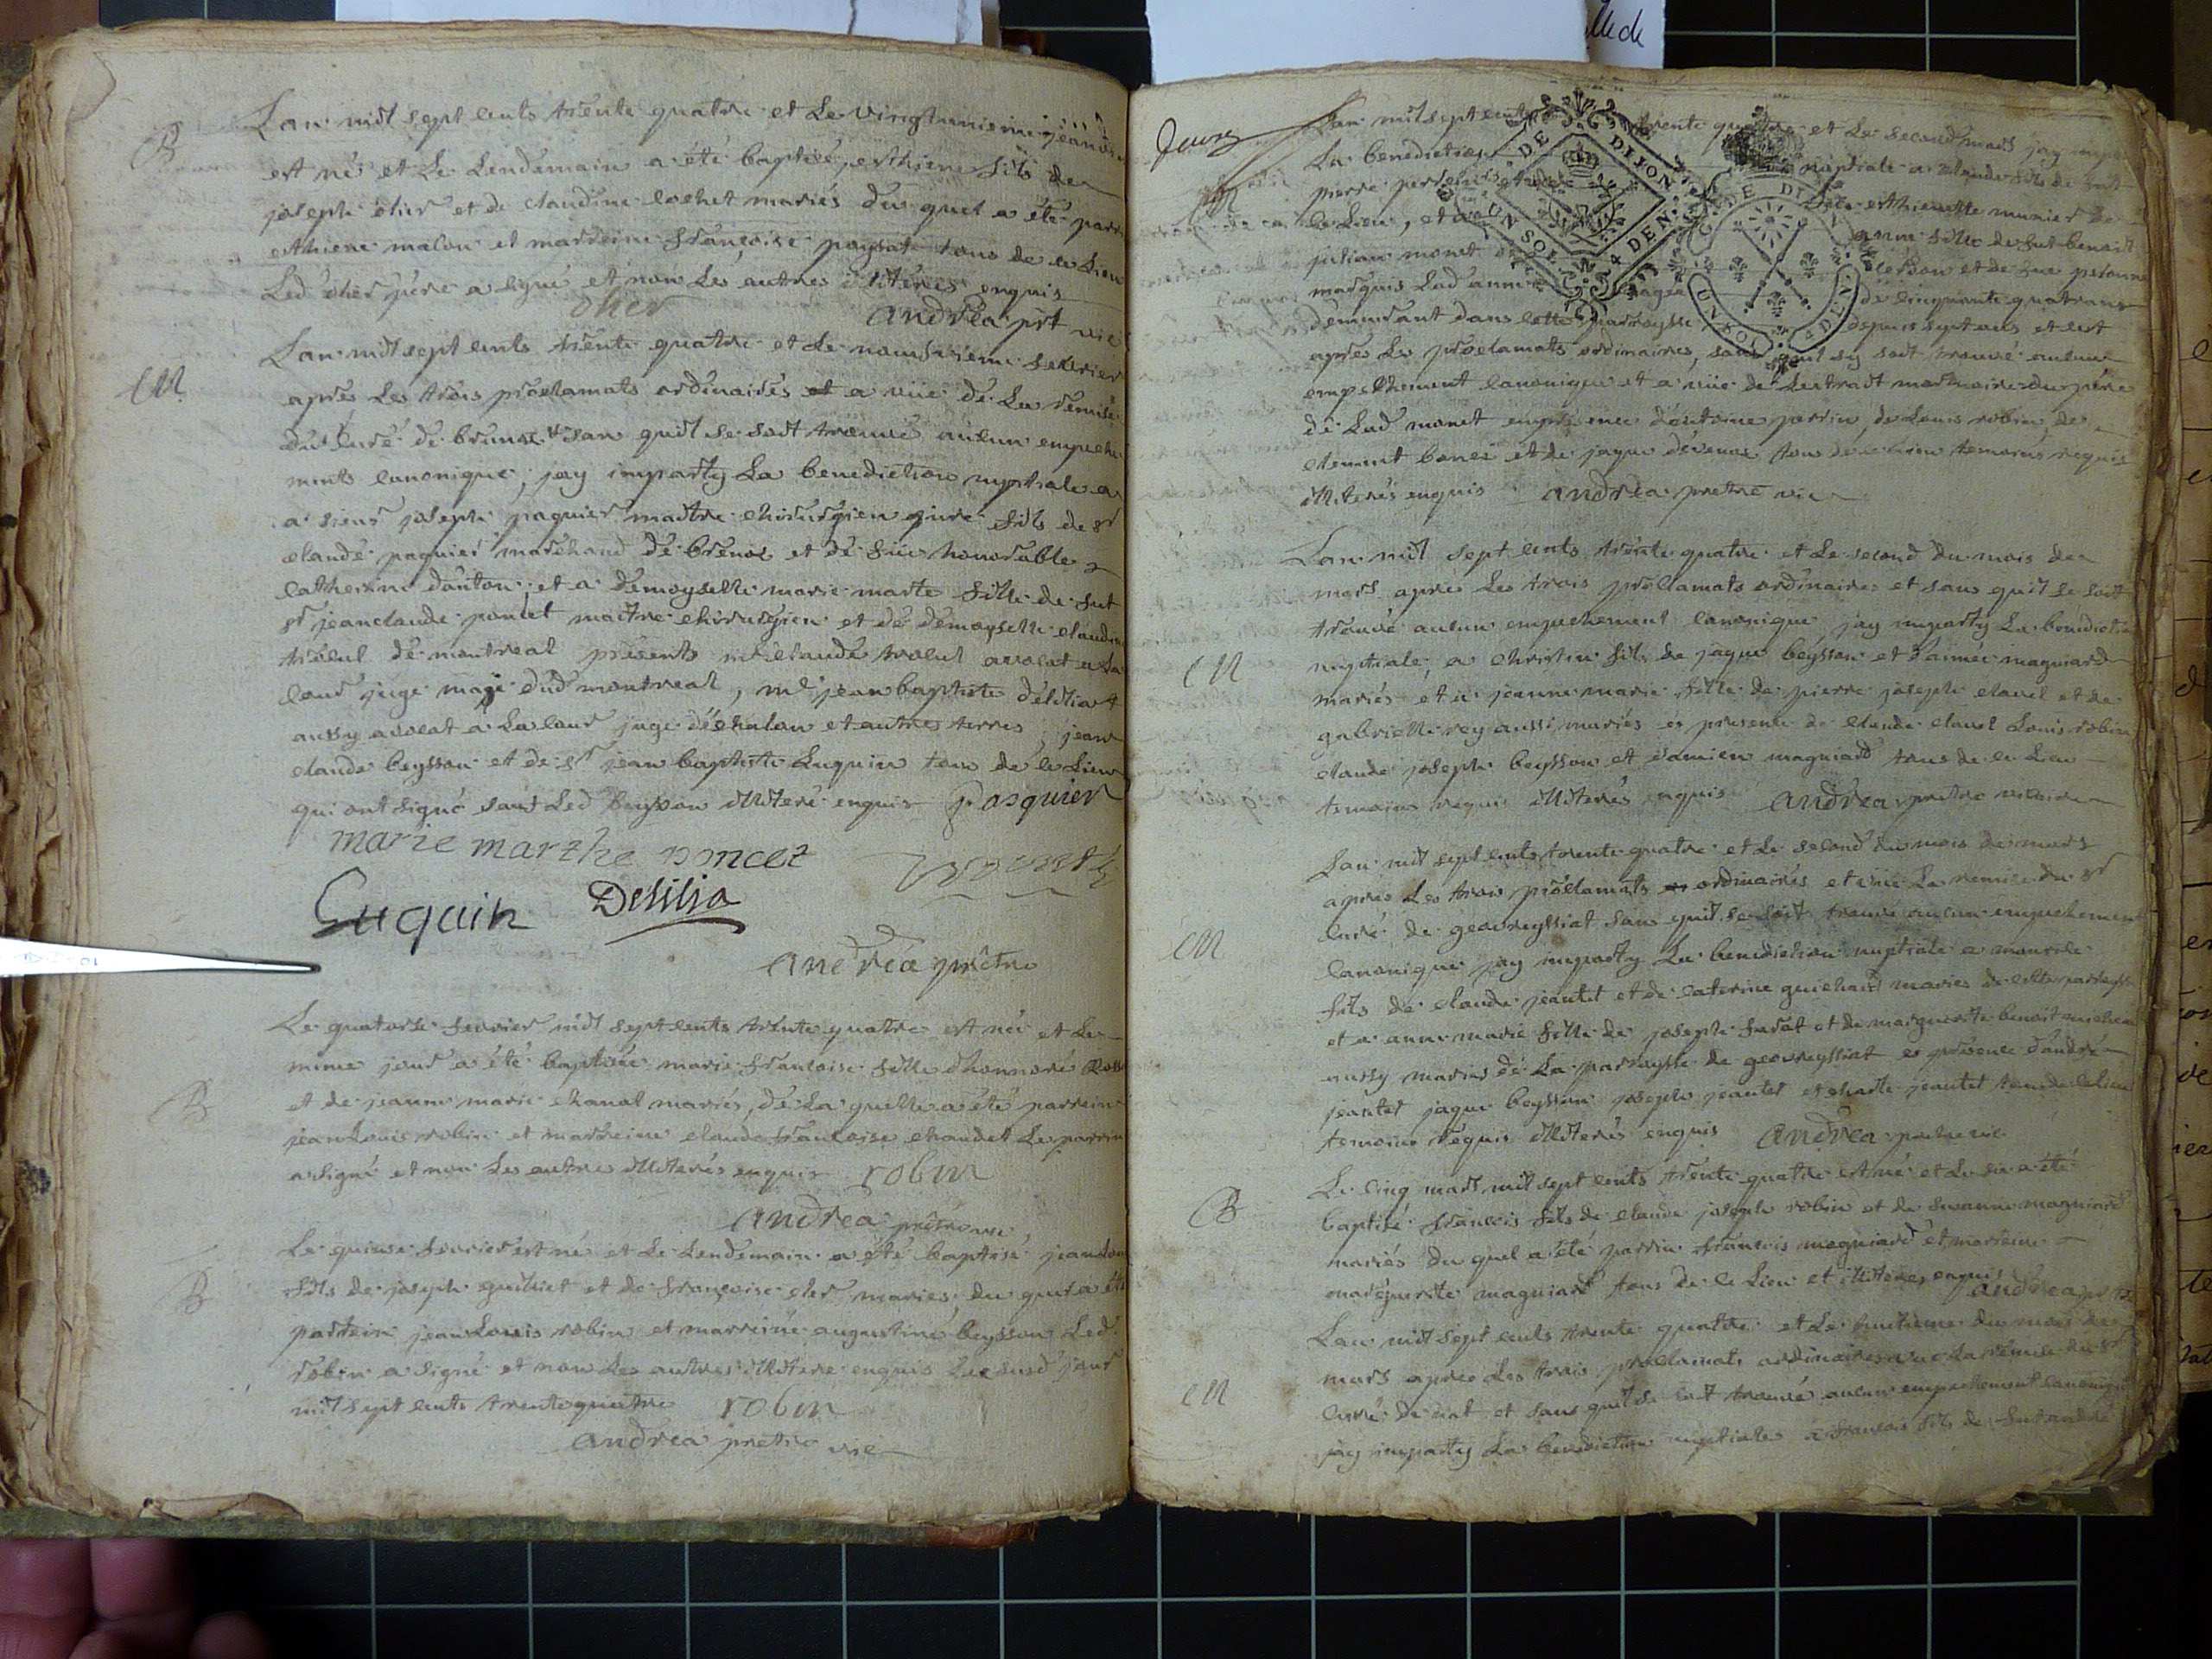 B
Lan mil sept cents trente quatre et Le vingtunieme jeanvier
est né et Le Lendemain a été baptisé esthiene fils de
joseph olier et de claudine cochet mariés du quel a été parr
esthiene malon et marreine françoise paysat tous de ce Lieu
Led olier pere a signé et non Les autres illiteres enquis
olier
andréa prt vic
M
Lan mil sept cents trente quatre et Le neufvieme fevrier
aprés Les trois proclamats ordinaires et a vüe de La remise
du Curé de brenoz sans quil se soit trouvé aucun empeche
ments canonique, jay imparty La benediction nuptiale a
a sieur joseph paquier maitre chirurgien juré fils de sr
claude paquier marchand de brenoz et de füe honorable
catherine dauton, et a demoyselle marie marte fille de fut
sr jeanclaude poncet maitre chirurgien et de demoyselle claudine
trocut de montreal presents me claude trocut avocat a La
cour juge maje dud montreal, me jean baptiste délilia
aussy avocat a La cour juge déchalon et autres terres, jean
claude beysson et de sr jean baptiste Luquin tous de ce Lieu
qui ont signé sauf Led beysson illiteré enquis Pasquier
marie marthe poncet
Luquin Delilia
andréa prêtre
B
Le quatorse fevrier mil sept cents trente quatre est née et Le
mime jour a été baptisée marie françoise fille dhonnoré
et de jeanne marie chanal mariés, de La quelle a été parrein
jean Louis robin et marreine claude françoise chaudet Le parrin
a signé et non Les autres illiterés enquis robin
andréa prêtre vic
B
Le quinse fevrier est né et Le Lendemain a été baptisé jean
fils de joseph guilliet et de françoise cler mariés, du quel a été
parrein jean Louis robin et marreine augustine beysson Led
robin a signé et non Les autres illitere enquis Le susd jour
mil sept cents trente quatre robin
andréa prêtre vic
Lan mil sept cents trente quatre et Le second mars jay imparty
La benediction nuptiale a claude fils de fut
pierre et esthienette munier de
ce Lieu, et fille de fut benoit
julian monet et de
marquis Lad anne agée de cinquante quatre ans
demeurant dans cette parroysse depuis sept ans et est
apres Les proclamats ordinaires, sans quil sy soit trouvé aucun
empechement canonique et a vüe de Lextrait mortuaire du pere
de Lad monet en presence dantoine perrin, de Louis robin, de
clement et de jaque tous de ce Lieu temoins requis
illiterés enquis andréa prêtre vic
M
Lan mil sept cents trente quatre et Le second du mois de
mars apres Les trois proclamats ordinaires et sans quil se soit
trouvé aucun empechement canonique jay imparty La benediction
nuptiale, a christin fils de jaque beysson et daimée magniard
mariés et a jeanne marie fille de pierre joseph clavel et de
gabrielle rey aussi mariés es presence de claude clavel Louis robin
claude joseph beysson et damien magniard tous de ce Lieu
temoins requis illiterés enquis andréa prêtre vicaire
M
Lan mil sept cents trente quatre et Le second du mois de mars
apres Les trois proclamats ordinaires et vüe La remise du sr
Curé de geovreyssiat sans quil se soit trouvé aucun empechement
canonique jay imparty La benediction nuptiale a
fils de claude jeantet et de caterine guichard mariés de cette parroysse
et a anne marie fille de joseph furat et de marguerite benoit
aussy mariés de La parroysse de geovreyssiat es presence dandré
jeantet jaque beysson joseph jeantet et jeantet tous de ce Lieu
temoins requis illiterés enquis andréa prêtre vic
B
Le cinq mars mil sept cents trente quatre est né et Le six a été
baptisé françois fils de claude joseph robin et de susanne magniard
mariés du quel a été parrin françois magniard et marreine
marguerite magniard tous de ce Lieu et illiteres enquis andréa
M
Lan mil sept cents trente quatre et Le huitieme du mois de
mars apres Les trois proclamats ordinaires vue La remise du sr
Curé de et sans quil se soit trouvé aucun empechement canonique
jay imparty La benediction nuptiale a françois fils de fut andré
DE DIJON
UN SOL 4 DEN